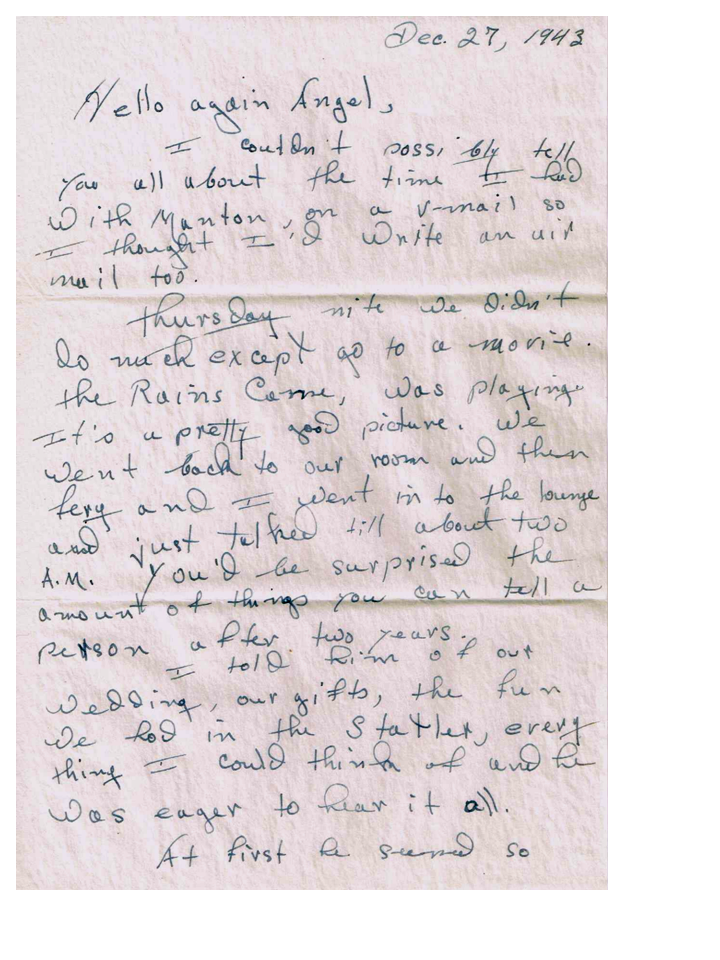 Dec. 27, 1943
Hello again Angel,
I couldn't possibly tell
you all about the time I had
With Manton, on a v-mail so
I thought I'd write an air
mail too.
Thursday nite we didn't
do much except go to a movie.
the Rains Came, was playing.
It's a pretty good picture. We
went back to our room and then
ferg and I went in to the lounge
and just talked till about two
A.M. You'd be surprised the
amount of things you can tell a
person after two years.
I told him of our
wedding, our gifts, the fun
we had in the Statler, every
thing I could think of and he
was eager to hear it all.
At first he seemed so